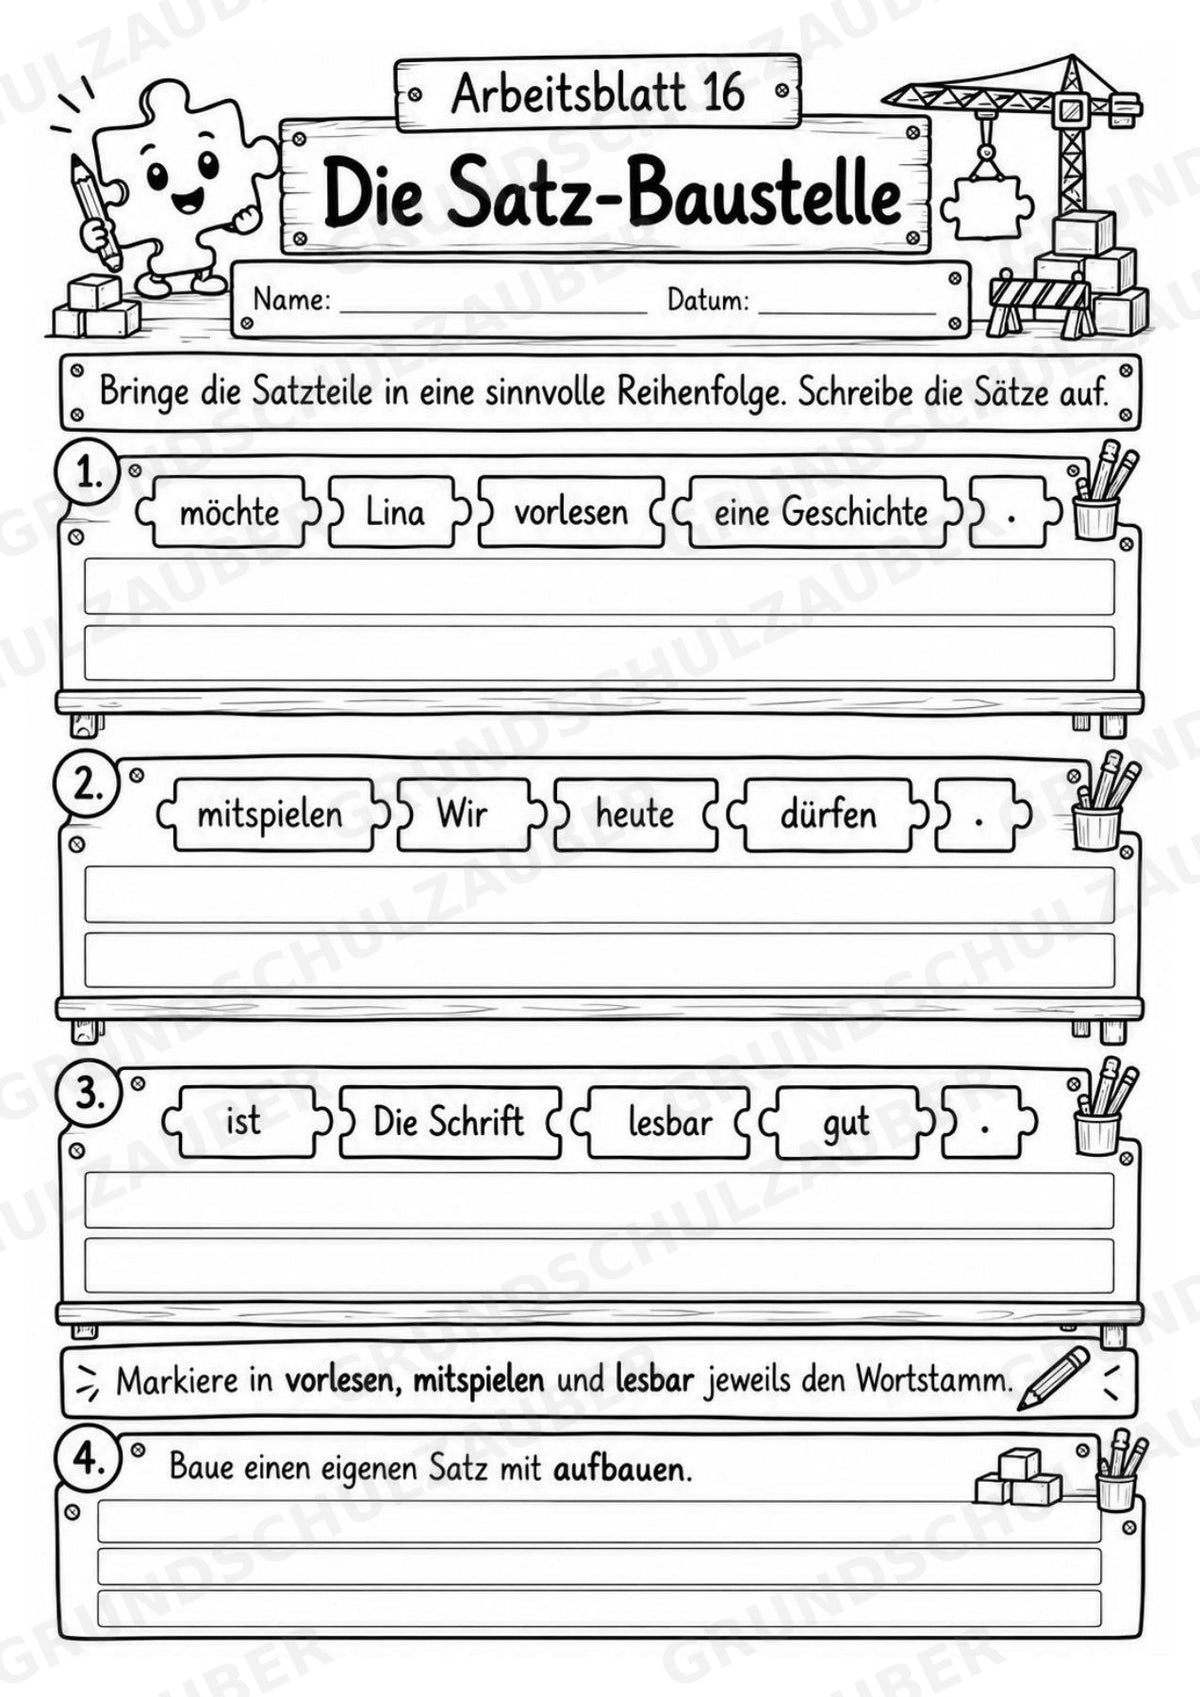 Arbeitsblatt 16
Die Satz-Baustelle
Name: Datum:
Bringe die Satzteile in eine sinnvolle Reihenfolge. Schreibe die Sätze auf.
1.
möchte Lina vorlesen eine Geschichte .
2.
mitspielen Wir heute dürfen .
3.
ist Die Schrift lesbar gut .
Markiere in vorlesen, mitspielen und lesbar jeweils den Wortstamm.
4. Baue einen eigenen Satz mit aufbauen.
GRUNDSCHULZAUBER